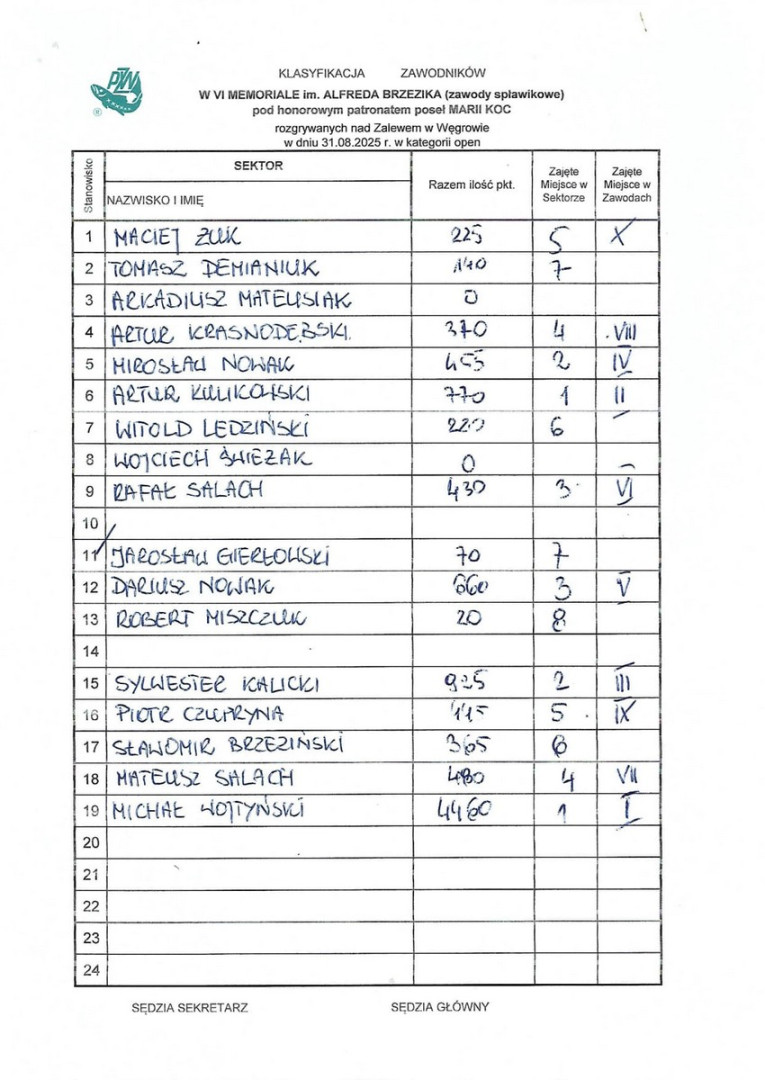 PZW
®
KLASYFIKACJA ZAWODNIKÓW
W VI MEMORIALE im. ALFREDA BRZEZIKA (zawody spławikowe)
pod honorowym patronatem poseł MARII KOC
rozgrywanych nad Zalewem w Węgrowie
w dniu 31.08.2025 r. w kategorii open
Stanowisko
SEKTOR
NAZWISKO I IMIĘ
Razem ilość pkt.
Zajęte Miejsce w Sektorze
Zajęte Miejsce w Zawodach
1 MACIEJ ŻUK 225 5 X
2 TOMASZ DEMIANIUK 140 7
3 ARKADIUSZ MATEUSIAK 0
4 ARTUR KRASNODĘBSKI 370 4 VIII
5 MIROSŁAW NOWAK 455 2 IV
6 ARTUR KULIKOWSKI 770 1 II
7 WITOLD LEDZIŃSKI 220 6
8 WOJCIECH ŚWIEZAK 0
9 RAFAŁ SALACH 430 3 VI
10
11 JAROSŁAW GIERŁOWSKI 70 7
12 DARIUSZ NOWAK 660 3 V
13 ROBERT MISZCZUK 20 8
14
15 SYLWESTER KALICKI 925 2 III
16 PIOTR CZUPRYNA 5 IX
17 SŁAWOMIR BRZEZIŃSKI 365 6
18 MATEUSZ SALACH 480 4 VII
19 MICHAŁ WOJTYŃSKI 4460 1 I
20
21
22
23
24
SĘDZIA SEKRETARZ SĘDZIA GŁÓWNY